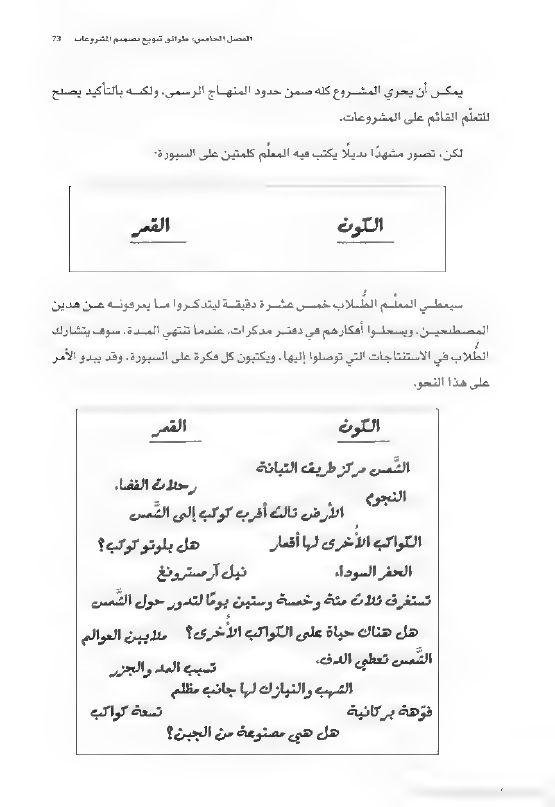 الفصل الخامس: طرائق تنويع تصميم المشروعات 73
يمكن أن يجري المشروع كله ضمن حدود المنهاج الرسمي، ولكنه بالتأكيد يصلح
للتعلّم القائم على المشروعات.
لكن، تصور مشهدًا بديلًا يكتب فيه المعلّم كلمتين على السبورة:
الكون القمر
سيعطي المعلّم الطُّلاب خمس عشرة دقيقة ليتذكروا ما يعرفونه عن هذين
المصطلحين، ويسجلوا أفكارهم في دفتر مذكرات. عندما تنتهي المدة، سوف يتشارك
الطُّلاب في الاستنتاجات التي توصلوا إليها، ويكتبون كل فكرة على السبورة، وقد يبدو الأمر
على هذا النحو:
الكون القمر
الشَّمس مركز طريق التبانة
رحلات الفضاء
النجوم
الأرض ثالث أقرب كوكب إلى الشَّمس
الكواكب الأُخرى لها أقمار هل بلوتو كوكب؟
الحفر السوداء نيل آرمسترونغ
تستغرق ثلاث مئة وخمسة وستين يومًا لتدور حول الشَّمس
هل هناك حياة على الكواكب الأُخرى؟ ملايين العوالم
الشَّمس تعطي الدفء
تسبب المد والجزر
الشهب والنيازك لها جانب مظلم
فوّهة بركانية تسعة كواكب
هل هي مصنوعة من الجبن؟